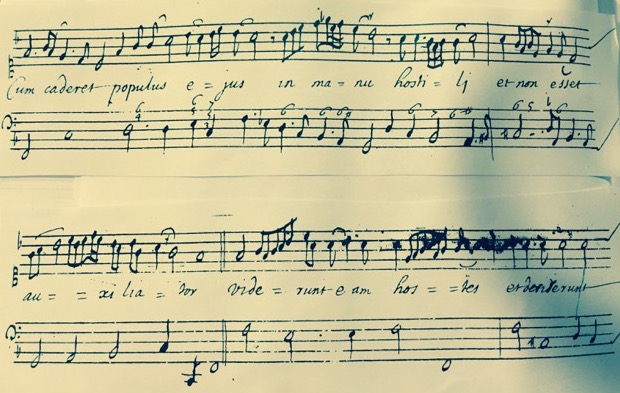 Cum caderet populus e = jus in ma = nu hosti = lj et non esset
au = = xilia = tor vide = runt eam hos = = tes et deriserunt